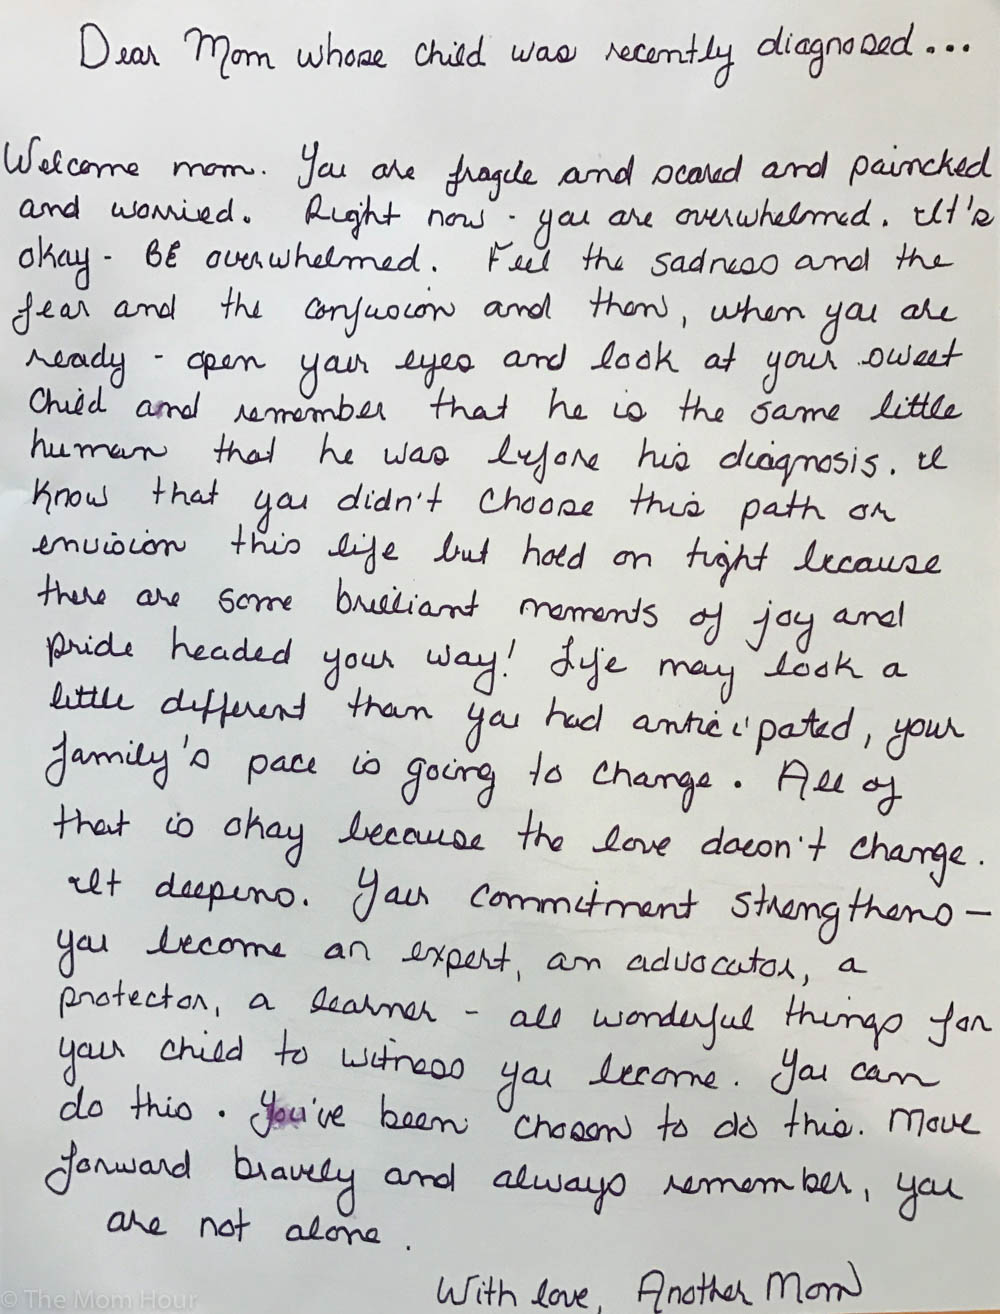 Dear Mom whose child was recently diagnosed...
Welcome mom. You are fragile and scared and paincked
and worried. Right now - you are overwhelmed. It's
okay - BE overwhelmed. Feel the sadness and the
fear and the confusion and then, when you are
ready - open your eyes and look at your sweet
child and remember that he is the same little
human that he was before his diagnosis. I
know that you didn't choose this path or
envision this life but hold on tight because
there are some brilliant moments of joy and
pride headed your way! Life may look a
little different than you had anticipated, your
family's pace is going to change. All of
that is okay because the love doesn't change.
It deepens. Your commitment strengthens -
you become an expert, an advocator, a
protector, a learner - all wonderful things for
your child to witness you become. You can
do this. You've been chosen to do this. Move
forward bravely and always remember, you
are not alone.
With love, Another Mom
© The Mom Hour